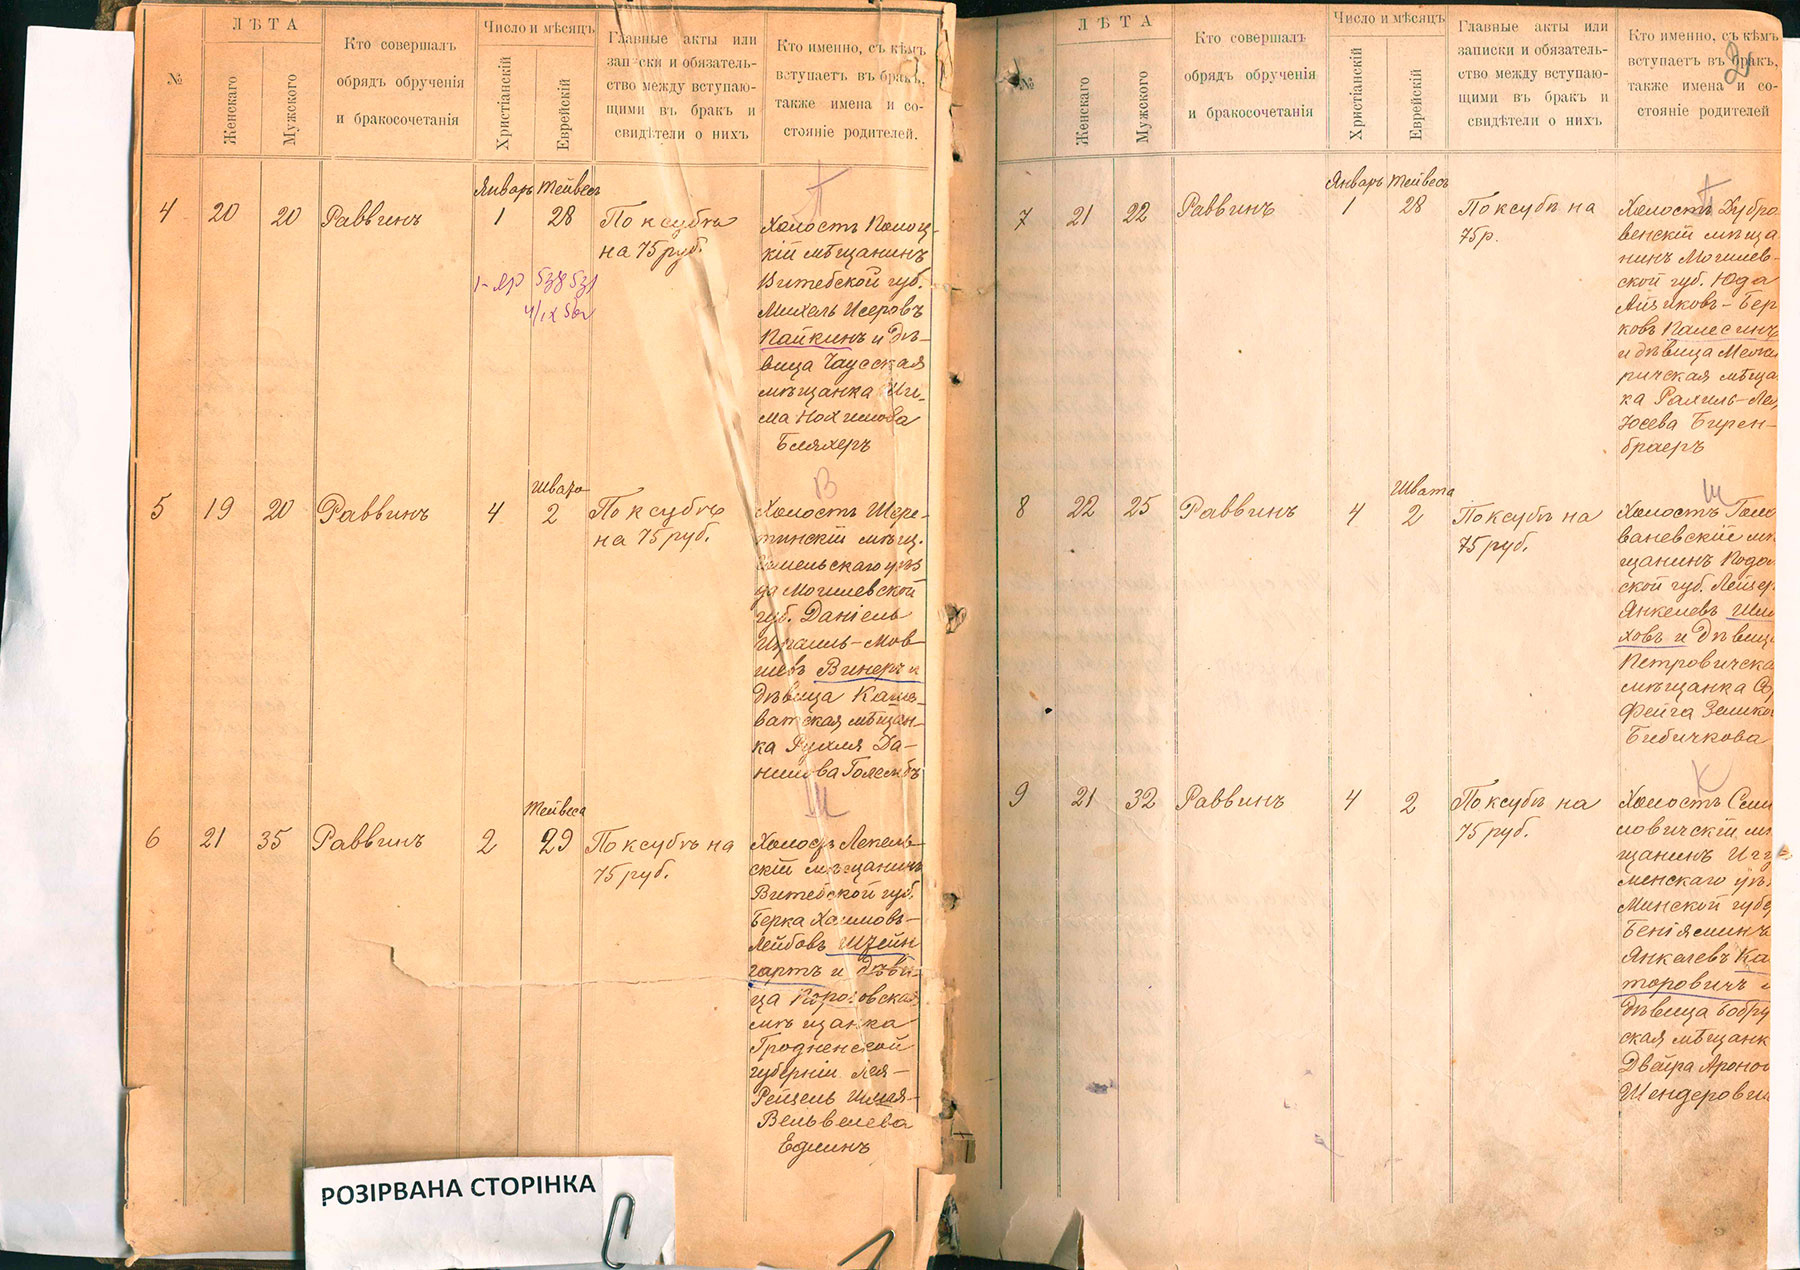 №
ЛѢТА
Женскаго
Мужского
Кто совершалъ
обрядъ обрученія
и бракосочетанія
Число и мѣсяцъ
Христіанскій
Еврейскій
Главные акты или
записки и обязатель-
ство между вступаю-
щими въ бракъ и
свидѣтели о нихъ
Кто именно, съ кѣмъ
вступаетъ въ бракъ,
также имена и со-
стояніе родителей.
4
20
20
Раввинъ
Январь
1
Тейвесъ
28
По ксубѣ
на 75 руб.
П
Холостъ Полоц-
кій мѣщанинъ
Витебской губ.
Михель Исеровъ
Пайкинъ и дѣ-
вица Чаусская
мѣщанка
ма Нохимова
Бляхеръ
5
19
20
Раввинъ
4
Швата
2
По ксубѣ
на 75 руб.
В
Холостъ Шере-
тинскій мѣщ.
Гомельскаго уѣз
да Могилевской
губ. Даніель
Израиль-Мов-
шевъ Винеръ и
дѣвица Каше-
ватская мѣщан-
ка Рухля Да-
нилова Голембъ
6
21
35
Раввинъ
2
Тейвеса
29
По ксубѣ на
75 руб.
Ш
Холостъ Лепель-
скій мѣщанинъ
Витебской губ.
Берка Хаимовъ-
Лейбовъ Штейн
гартъ и дѣви-
ца Порозовская
мѣщанка
Гродненской
губерніи Лея-
Рейцель Шмая-
Вельвелева
Единъ
РОЗІРВАНА СТОРІНКА
№
ЛѢТА
Женскаго
Мужского
Кто совершалъ
обрядъ обрученія
и бракосочетанія
Число и мѣсяцъ
Христіанскій
Еврейскій
Главные акты или
записки и обязатель-
ство между вступаю-
щими въ бракъ и
свидѣтели о нихъ
Кто именно, съ кѣмъ
вступаетъ въ бракъ,
также имена и со-
стояніе родителей
2
7
21
22
Раввинъ
Январь
1
Тейвесъ
28
По ксубѣ на
75р.
П
Холостъ Дубро
венскій мѣща
нинъ Могилев-
ской губ. Юда
Айзиковъ-Бер
ковъ Палесинъ
и дѣвица Межи
ричская мѣща
ка Рахиль-Лея
Юсева Бирен-
браеръ
8
22
25
Раввинъ
4
Швата
2
По ксубѣ на
75 руб.
Ш
Холостъ Голо
ваневскій мѣ
щанинъ Подо
ской губ. Лейзер
Янкелевъ
ховъ и дѣвица
Петровичска
мѣщанка
Фейга Зелико
Бибичкова
9
21
32
Раввинъ
4
2
По ксубѣ на
75 руб.
К
Холостъ Сми
ловичскій мѣ
щанинъ Игу
менскаго уѣз
Минской губе
Беніяминъ
Янкелевъ Ка
торовичъ и
дѣвица Бобру
ская мѣщанк
Двейра Ароно
Шендерови